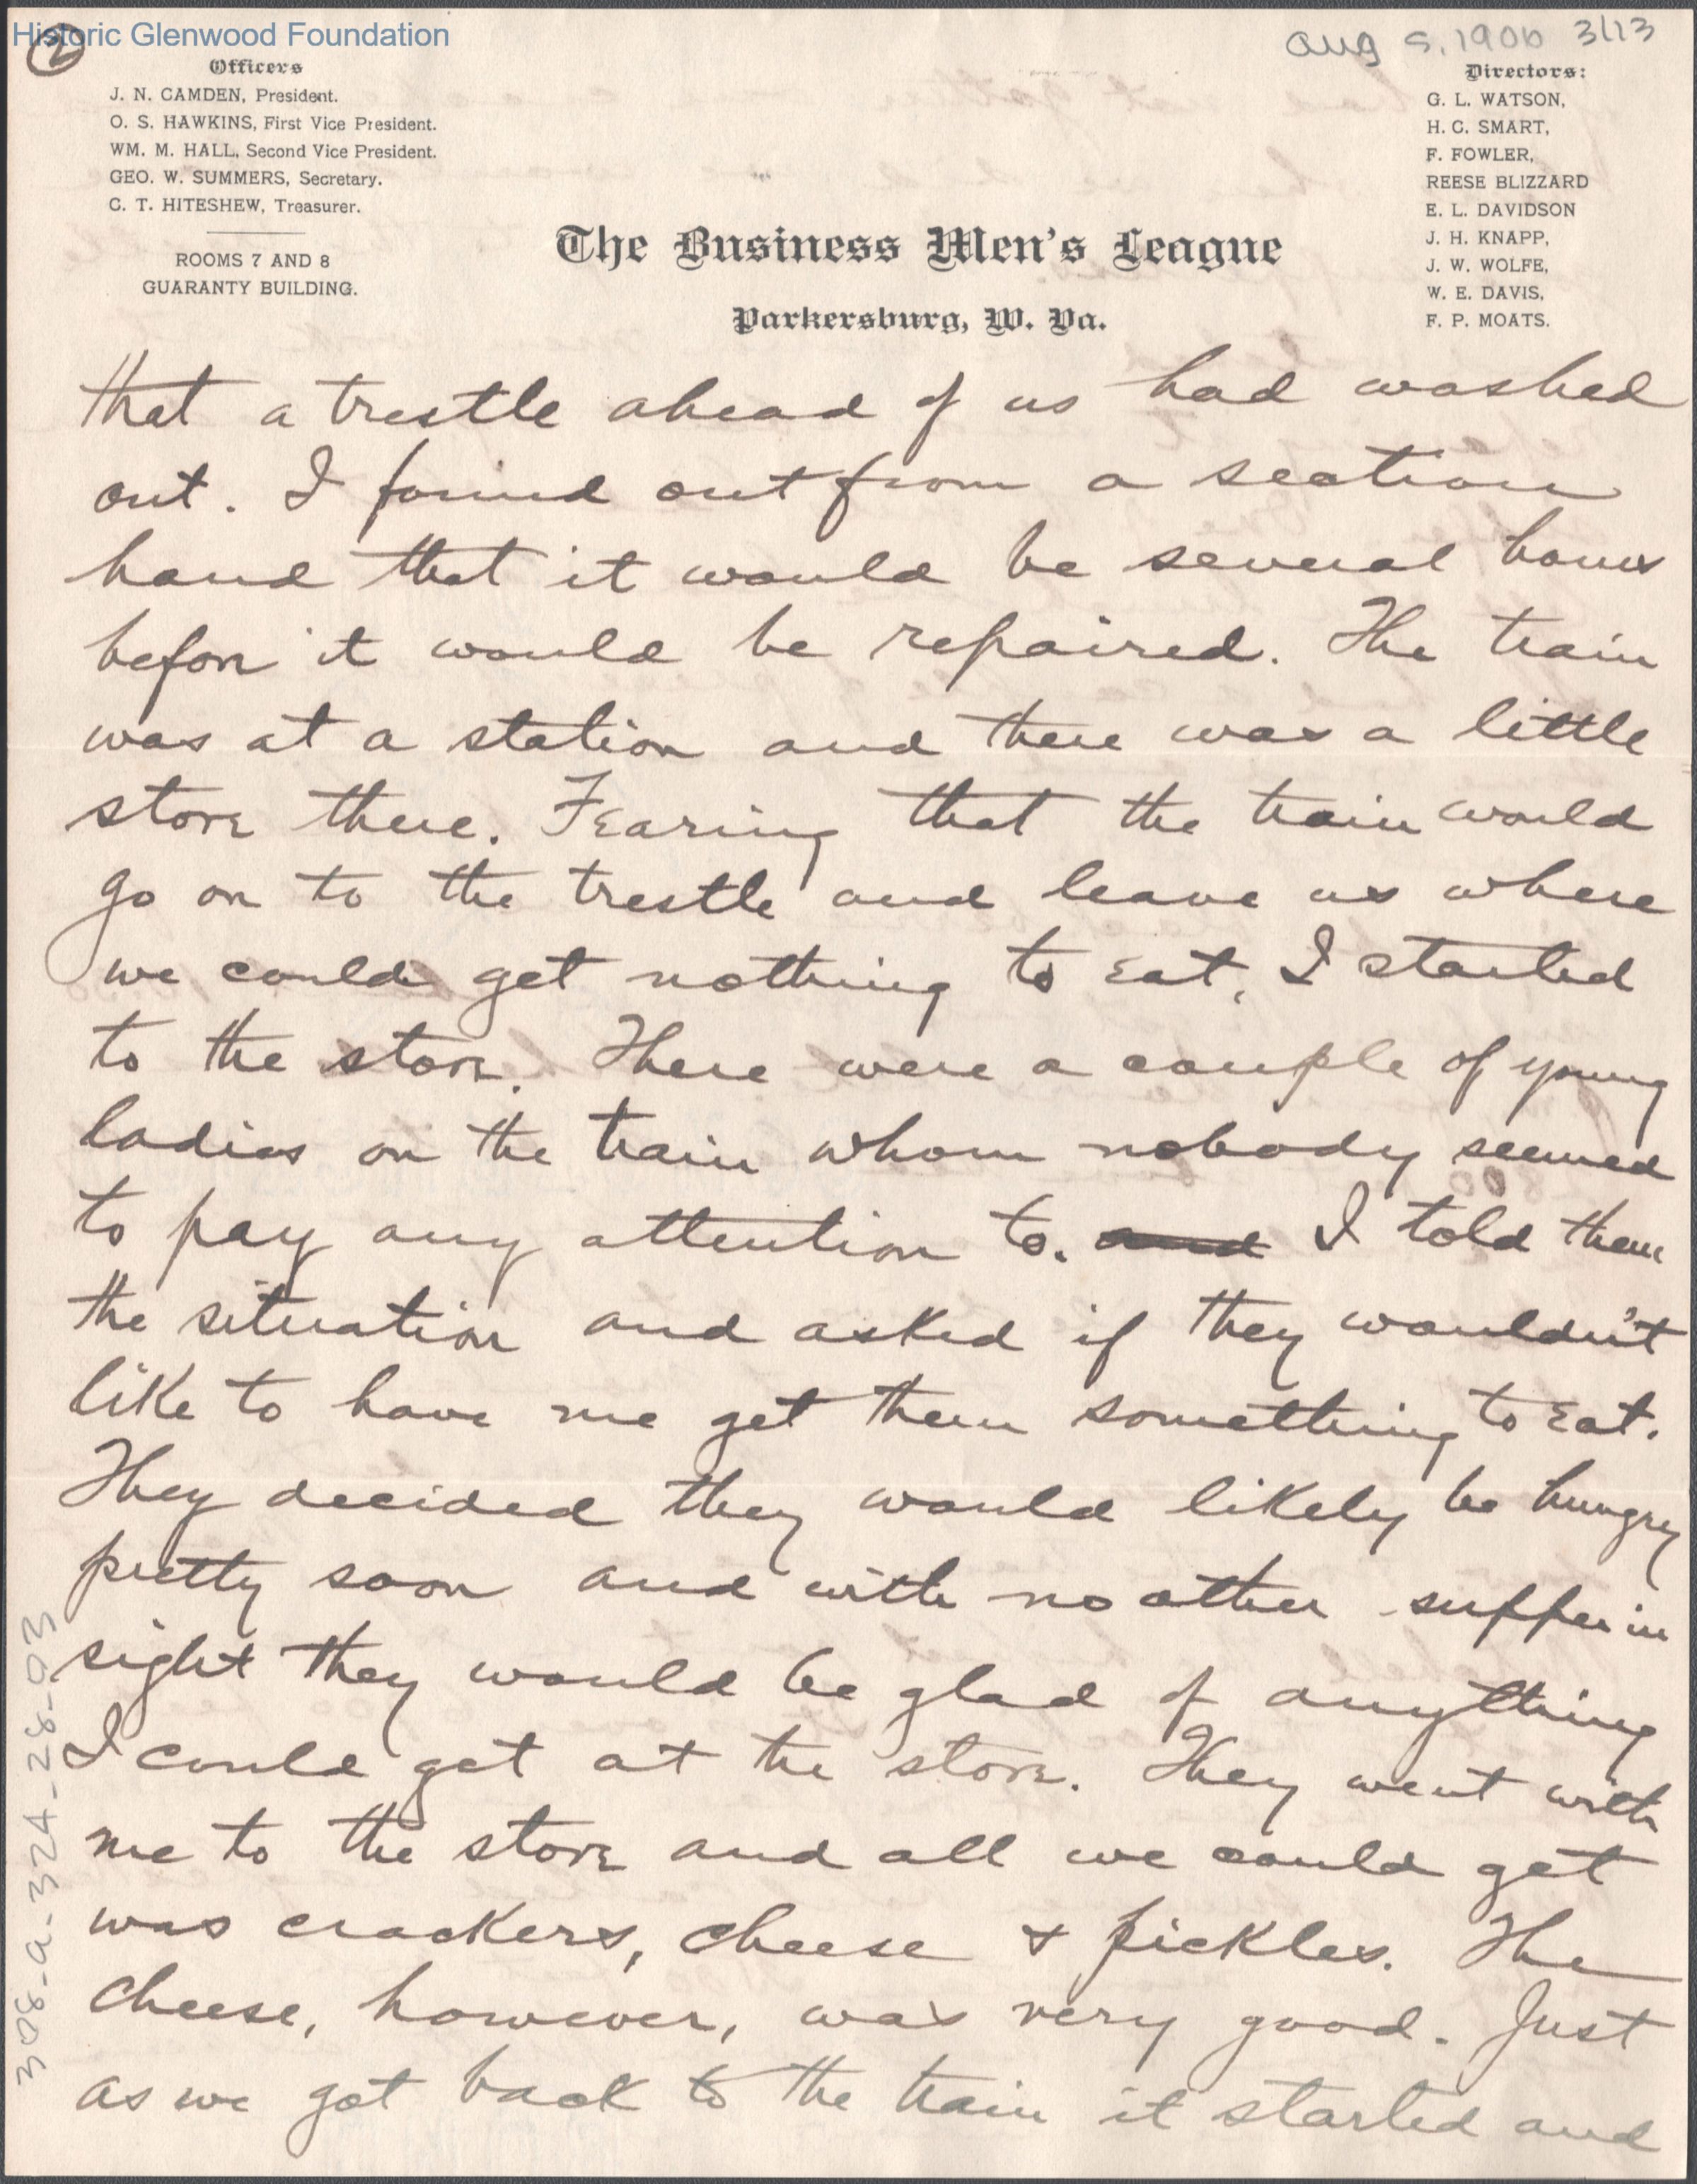 Historic Glenwood Foundation
2
Aug 5, 1906 3/13
Officers
J. N. CAMDEN, President.
O. S. HAWKINS, First Vice President.
WM. M. HALL, Second Vice President.
GEO. W. SUMMERS, Secretary.
C. T. HITESHEW, Treasurer.
ROOMS 7 AND 8
GUARANTY BUILDING.
The Business Men's League
Parkersburg, W. Va.
Directors:
G. L. WATSON,
H. C. SMART,
F. FOWLER,
REESE BLIZZARD
E. L. DAVIDSON
J. H. KNAPP,
J. W. WOLFE,
W. E. DAVIS,
F. P. MOATS.
that a trestle ahead of us had washed
out. I found out from a section
hand that it would be several hours
before it would be repaired. The train
was at a station and there was a little
store there. Fearing that the train would
go on to the trestle and leave us where
we could get nothing to eat, I started
to the store. There were a couple of young
ladies on the train whom nobody seemed
to pay any attention to. and I told them
the situation and asked if they wouldn't
like to have me get them something to eat.
They decided they would likely be hungry
pretty soon and with no other supper in
sight they would be glad of anything
I could get at the store. They went with
me to the store and all we could get
was crackers, cheese & pickles. The
cheese, however, was very good. Just
as we got back to the train it started and
308-a-324-28-03